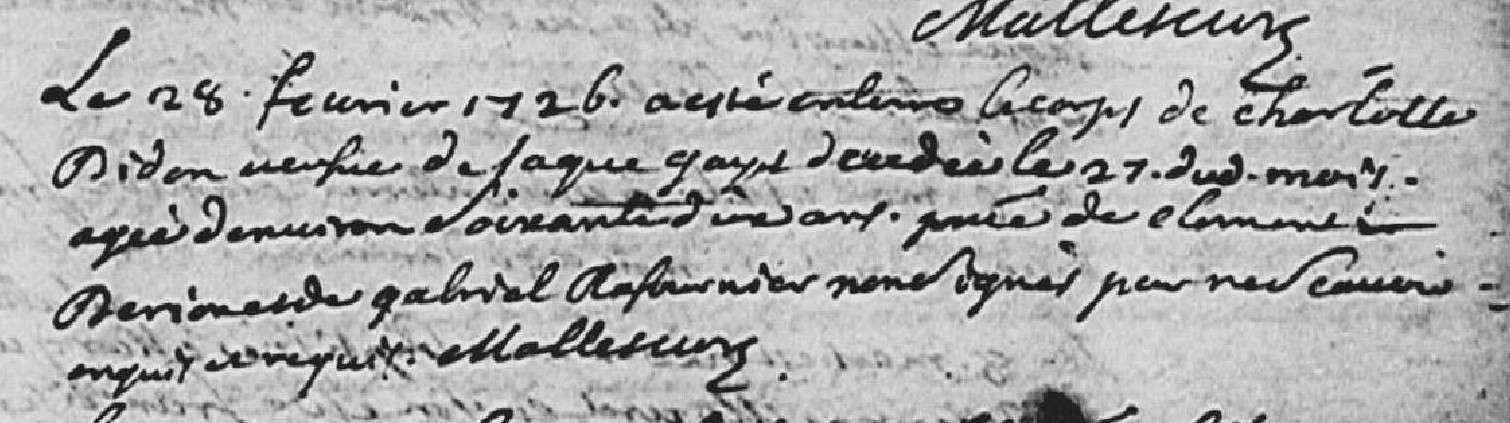 Mallescurz
Le 28. feurier 1726. a esté enterré le corps de Charlotte
Didon veufue de Jaque gays decedée le 27. dud. mois.
agée denuiron soixante dix ans. pnce de Clement
et de gabriel Lafournier non signés pour ne scauoir
enquis et requis. Mallescurz.